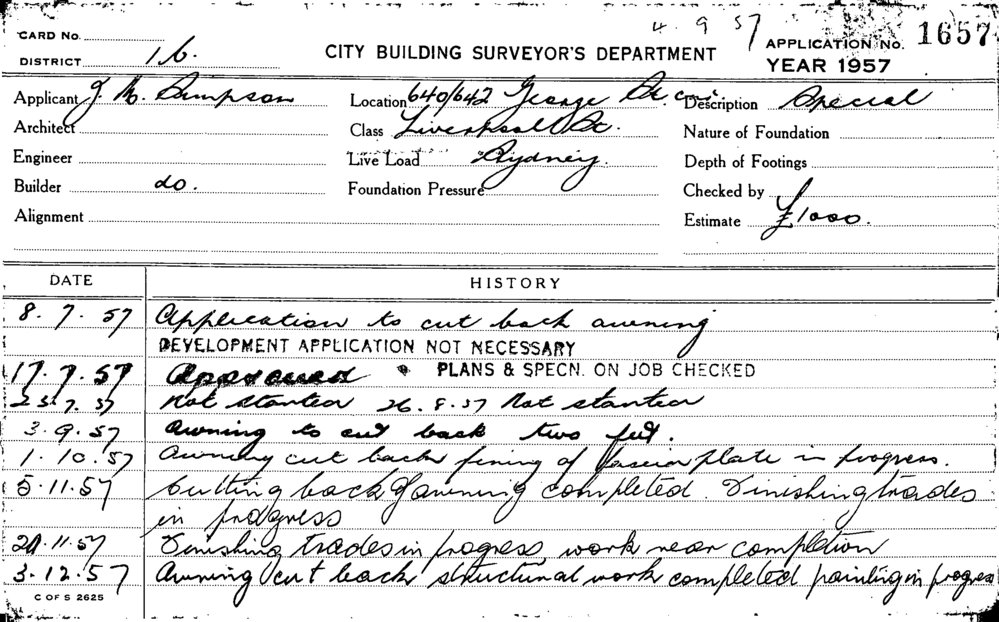 4. 9. 57
CARD No.
DISTRICT 16.
CITY BUILDING SURVEYOR'S DEPARTMENT
APPLICATION No. 1657
YEAR 1957
Applicant J. M. Simpson
Location 640/642 George St. cnr.
Description Special
Architect
Class Liverpool St.
Nature of Foundation
Engineer
Live Load Sydney.
Depth of Footings
Builder do.
Foundation Pressure
Checked by
Alignment
Estimate £1000.
DATE
HISTORY
8. 7. 57 Application to cut back awning
DEVELOPMENT APPLICATION NOT NECESSARY
17. 7. 57 Approved PLANS & SPECN. ON JOB CHECKED
23. 7. 57 Not started 26. 8. 57 Not started
3. 9. 57 Awning to cut back two feet.
1. 10. 57 Awning cut back fixing of fascia plate in progress.
5. 11. 57 Cutting back of awning completed. Finishing trades
in progress
11. 57 Finishing trades in progress, work near completion
3. 12. 57 Awning cut back structural work completed painting in progress
C OF S 2625